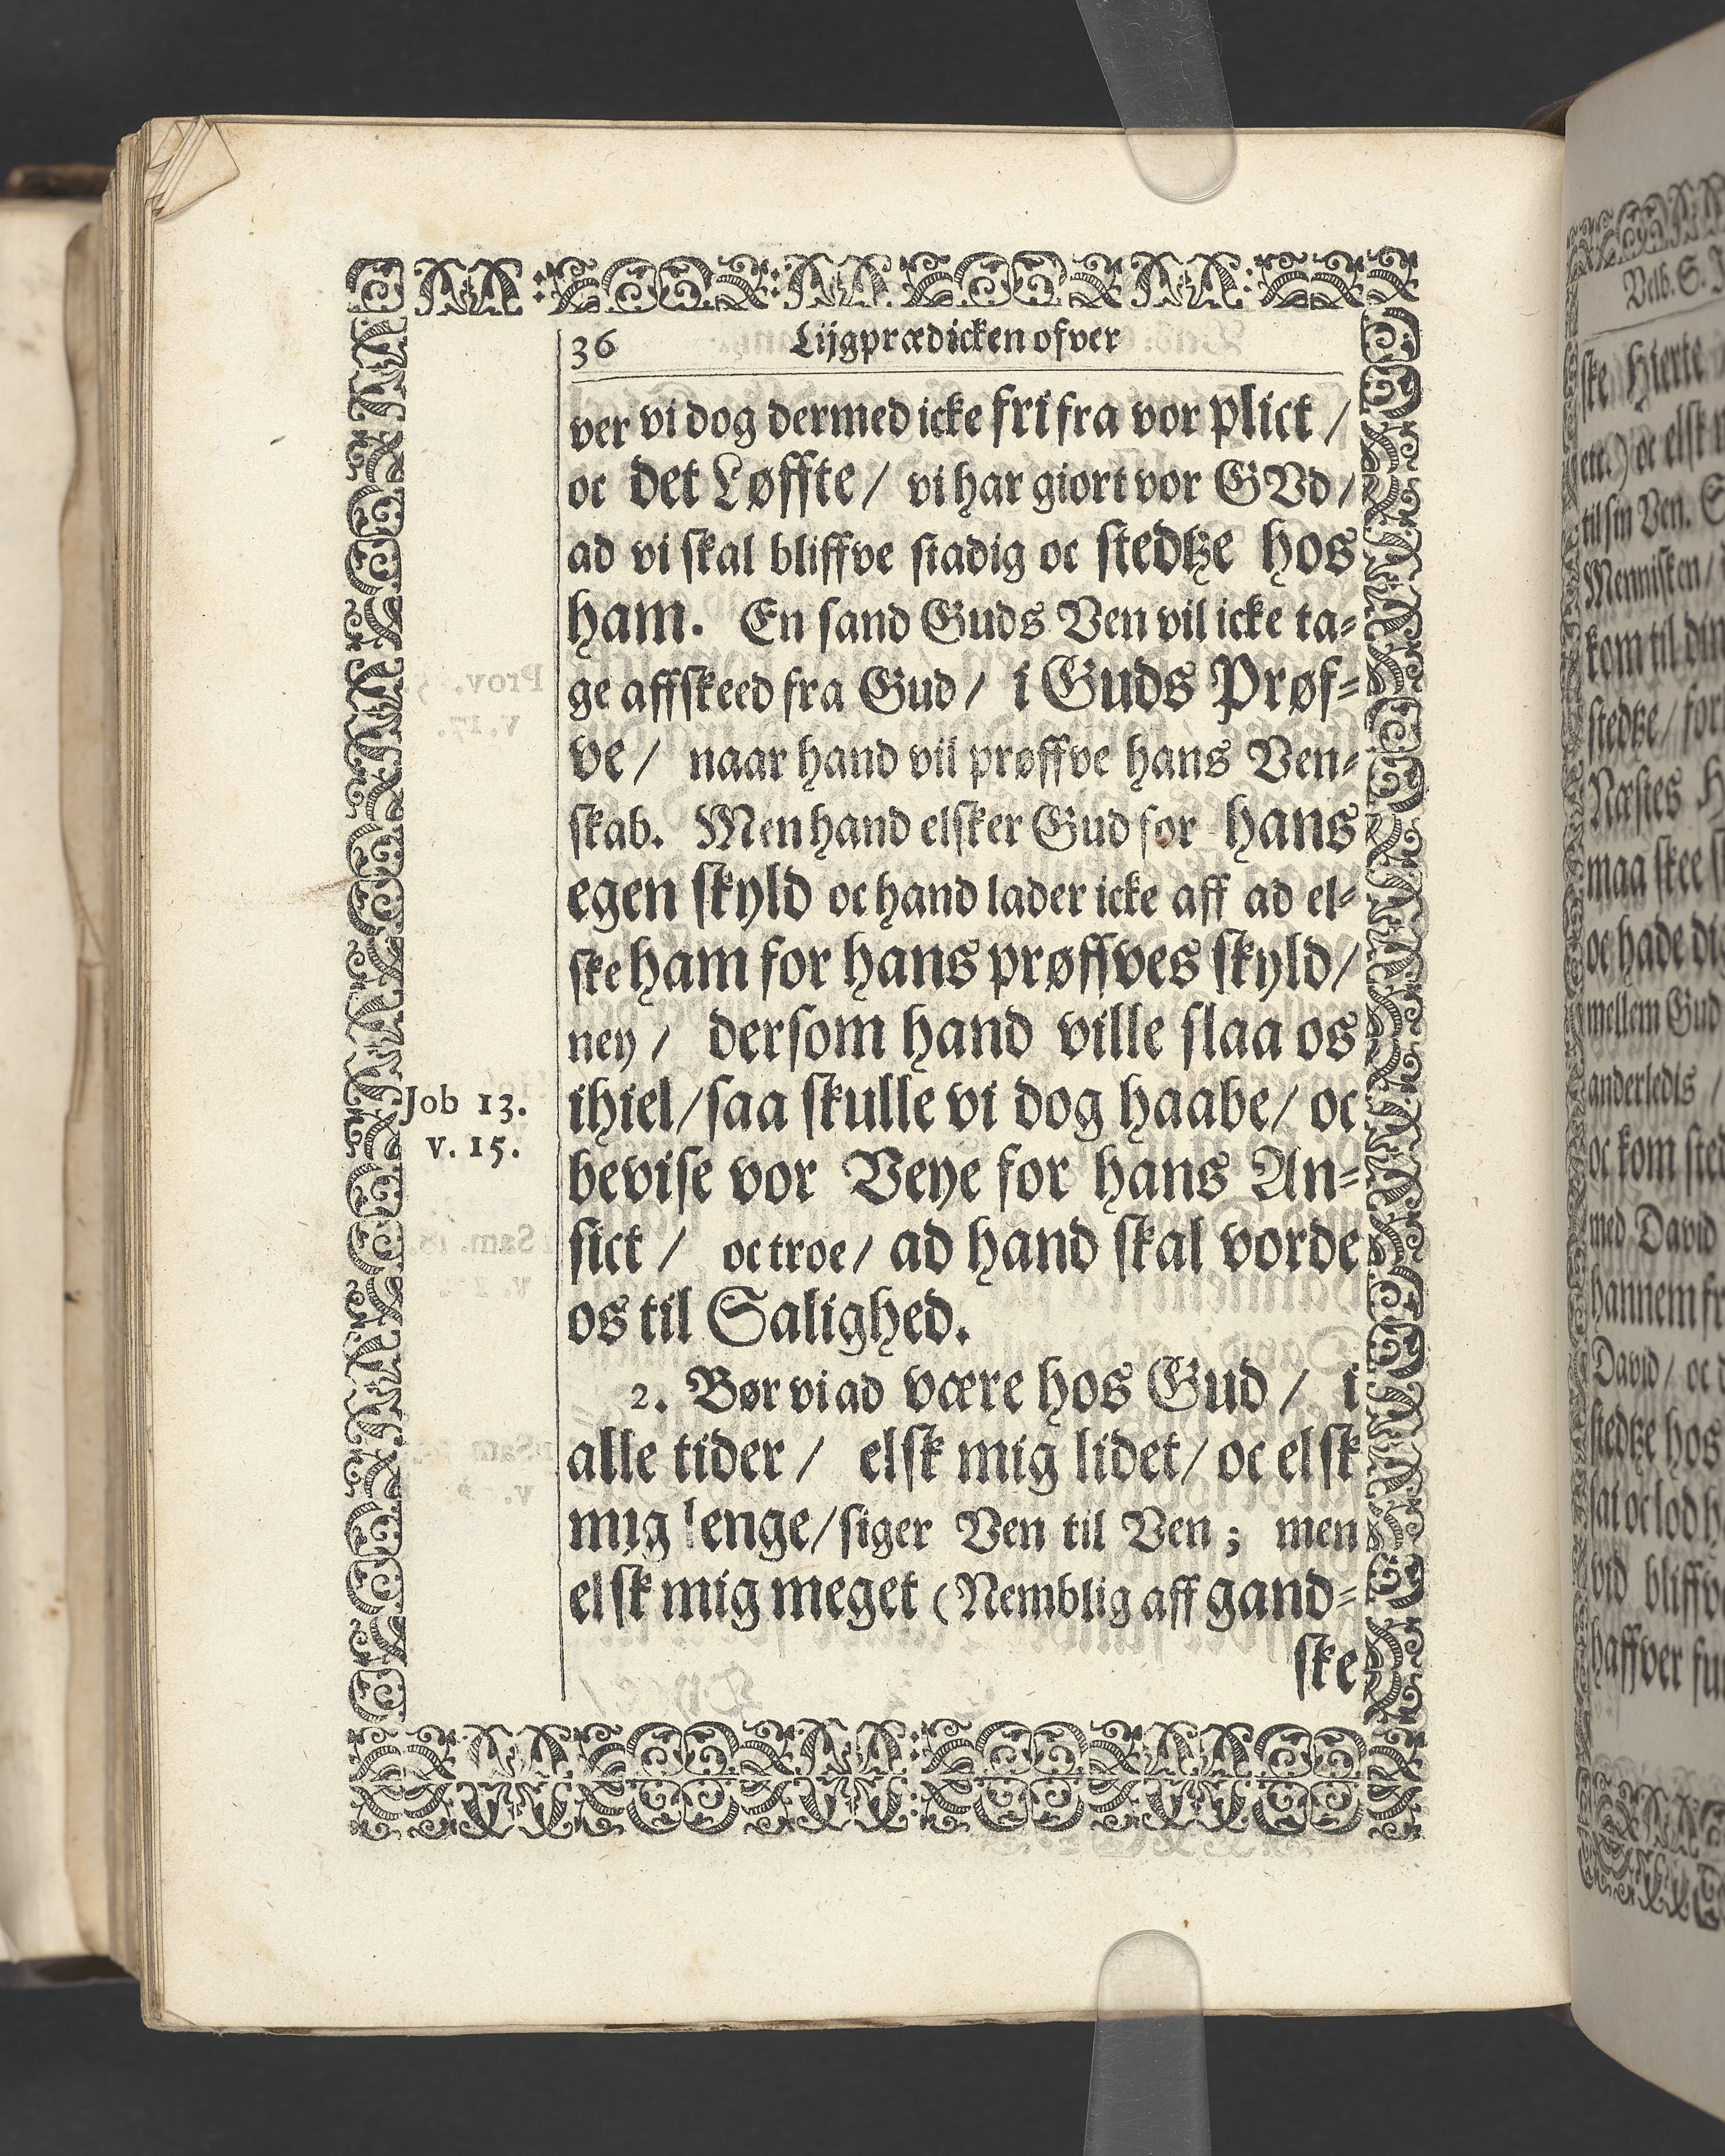 36 Lijgprædicken ofver
ver vi dog dermed icke fri fra vor plict /
oc det Løffte / vi har giort vor GVd /
ad vi skal bliffve stadig oc stedtze hos
ham. En sand Guds Ven vil icke ta-
ge affskeed fra Gud / i Guds Prøf-
ve / naar hand vil prøffve hans Ven-
skab. Men hand elsker Gud for hans
egen skyld oc hand lader icke aff ad el-
ske ham for hans prøffves skyld /
ney / dersom hand ville slaa os
ihiel / saa skulle vi dog haabe / oc
Job 13.
v. 15.
bevise vor Veye for hans An-
sict / oc troe / ad hand skal vorde
os til Salighed.
2. Bør vi ad være hos Gud / i
alle tider / elsk mig lidet / oc elsk
mig lenge / siger Ven til Ven ; men
elsk mig meget (Nemblig aff gand-
ske
Velb. S.
ske Hierte
etc.) oc elsk
til sin Ven.
Mennisken /
kom til din
stedtze / for
Næstes
maa skee
oc hade dig
mellem Gud
anderledis /
oc kom
med David
hannem
David / oc
stedtze hos
sat oc lod
vid bliffve
haffver